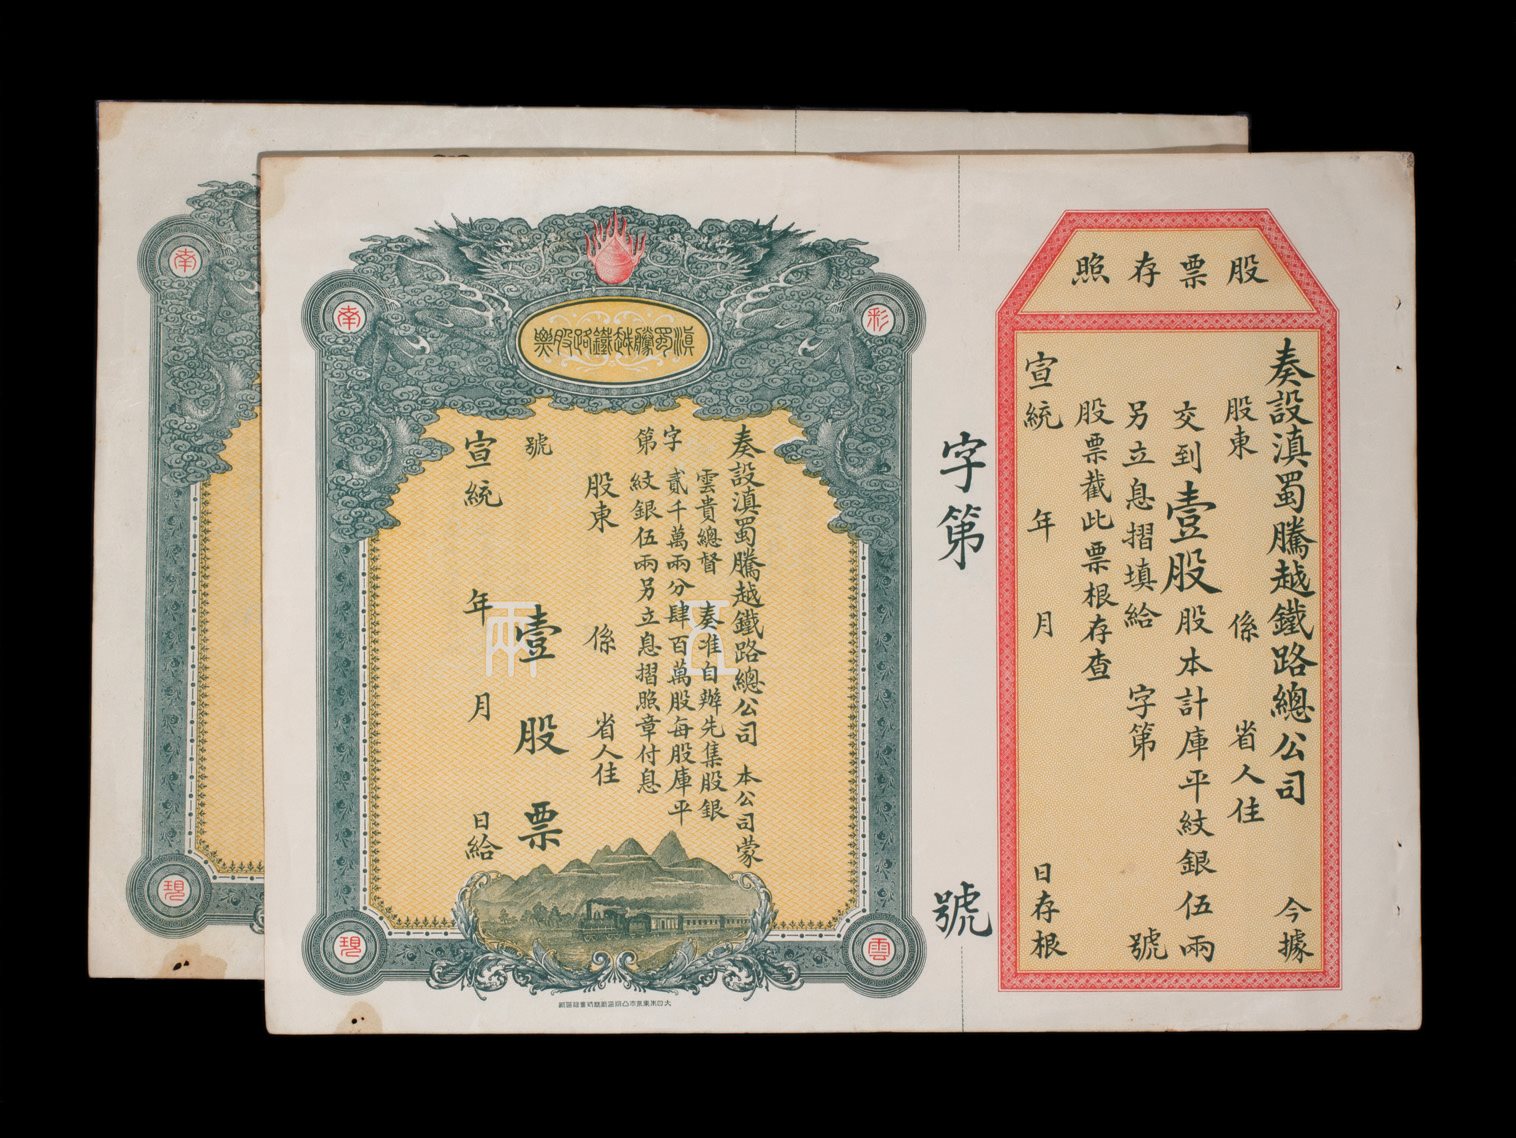 股票存照
奏設滇蜀騰越鐵路總公司 今據
股東 係 省人住
交到壹股股本計庫平紋銀伍兩
另立息摺填給 字第 號
股票截此票根存查
宣統 年 月 日存根
字第 號
滇蜀騰越鐵路股票
彩
南
雲
奏設滇蜀騰越鐵路總公司 本公司蒙
雲貴總督 奏准自辦先集股銀
貳千萬兩分肆百萬股每股庫平
紋銀伍兩另立息摺照章付息
字第 號
股東 係 省人住
壹股票
宣統 年 月 日給
五兩
南